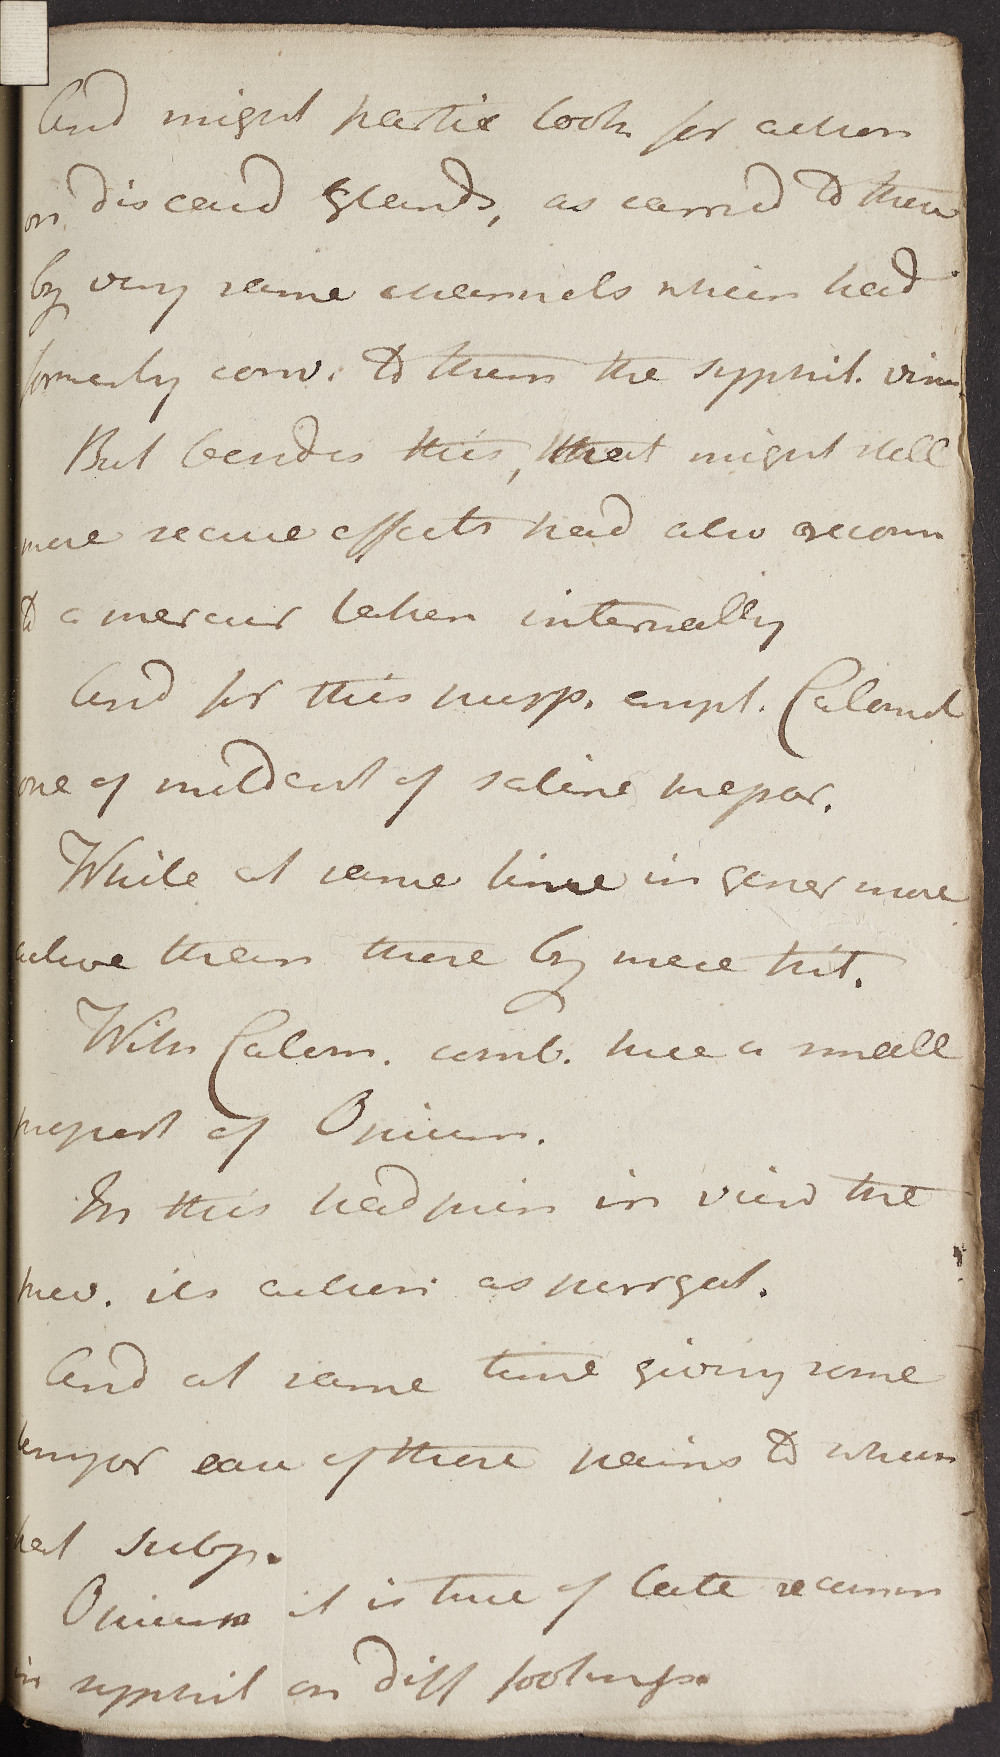 And might partic look for action
on diseasd Glands, as carried to them
by very same channels which had
formerly conv. to them the syphil. virus
But besides this, that might still
more secure effects had also recour
to a mercur taken internally
And for this purp. empl. Calomel
one of mildest of saline prepar.
While at same time in gener more
active than those by mere trit.
With Calom. comb. here a small
proport of Opium.
In this had princ in view the
prev. its action as purgat.
And at same time giving some
tempor ease of those pains to whom
pat subj.
Opium it is true of late recomm
in syphil on diff footings.